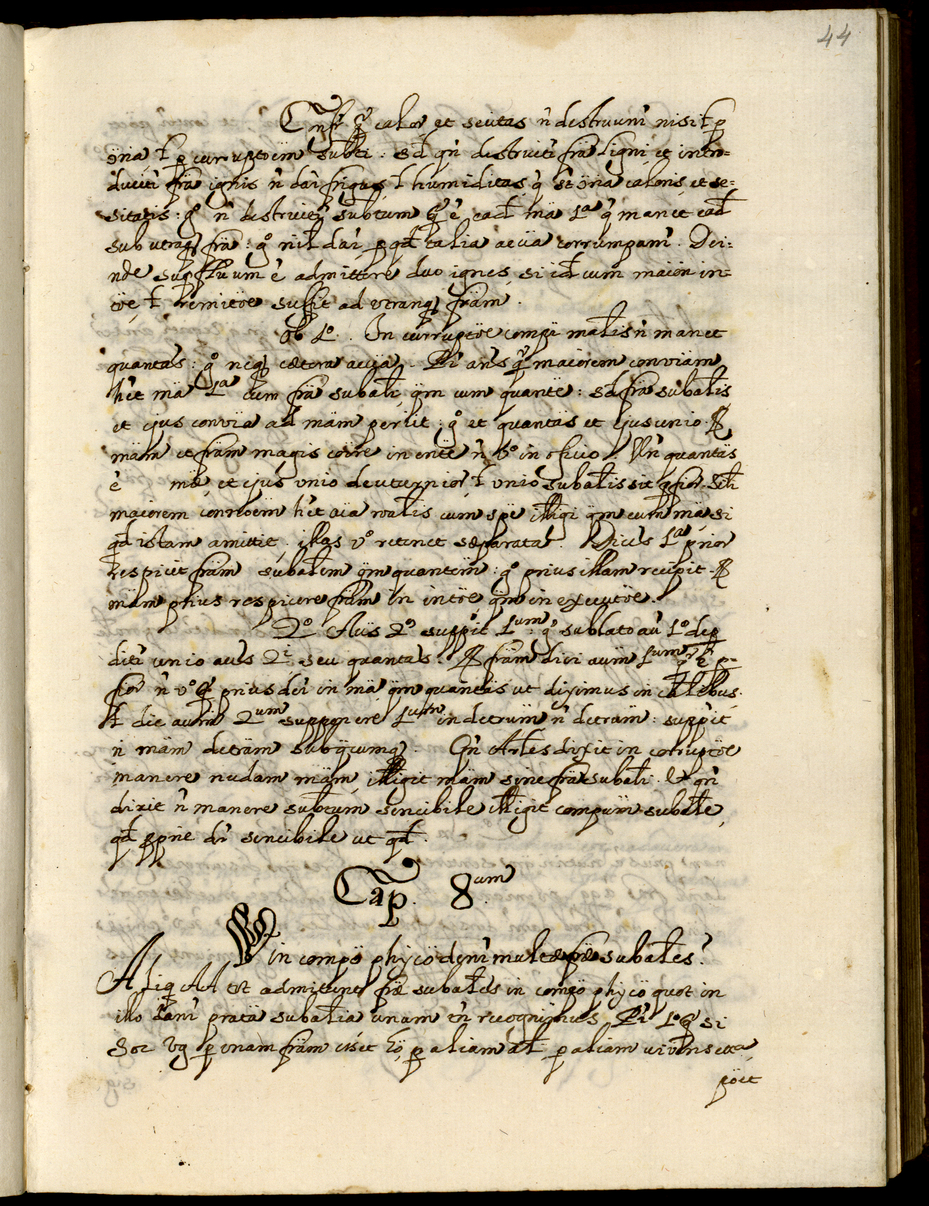 44
Cnfr qͥ calor et seitas n̄ destruunt̄ nisi t̄ p
öna t̄ p curruptöem subti : sd̄ qn̄ destruit̄ frä ligni et intro=
ducit̄ frä ignis n̄ dat̄ frigus t̄ humiditas q̄ st̄ öna caloris et se=
sitatis : gͦ n̄ destruit̄ subtum qͥ ē ead̄ mä 1ª q̄ manet ead̄
sub utraq frä : gͦ nil dat̄ p qd̄ talia accia corrumpant̄. Dei=
nde supfluum ē admittere duo ignes, si id̄ cum maiori in=
töe, t̄ remitöe suffit ad utranq främ.
Ob 1º. In curruptöe compti matis n̄ manet
quantas : gͦ neq cætera accia. Pt̄ ans qͥ maiorem conviam
het mä 1ª cum frä subati, qm cum quante : sd̄ frä subatis
et ejus convia ad mäm perit : gͦ et quantas et ejus unio. R
mäm et främ magis coire in ente n̄ vº in officio. Un̄ quantas
ē mä, et ejus unio deuturnior, t̄ unio subatis sit pfior. Seti
maiorem connoem het aia roatis cum spe itligi qm cum mä si
qd̄ istam amittit, illas vº retinet separata. Dices 1ª prior
respicit främ subatem qm quantem : gͦ prius illam recipit. R
mäm prius respicere främ in intöe, qm in executöe.
2º Auis 2º suppit 1um : gͦ sublato au 1º dep
dit̄ unio auis 2i seu quantas. R främ dici auüm 1um qͥ ē p=
fior n̄ vº qͥ prius det̄ in mä qm quantas ut diximus in
t̄ die auüm 2um supponere 1um in detrum n̄ detram : suppit
n̄ mäm detram subqcumq. Qn̄ Artes dixit in corruptöe
manere nudam mäm, itligit mäm sine frä subati. Et qn̄
dixit n̄ manere subtum sincibile itligit compum subate,
qd̄ pprie dr̄ sincibile ut qd̄.
Cap. 8um
Un in compö phyco dent̄ multæ fræ subates?
Aliq AA tot admittunt fræ subates in compö phyco quot in
illo dant̄ prata subatia unam tn̄ recognimus. Pt̄ 1º qͥ si
hoc vg p unam främ esset hö, p aliam at̄, p aliam vivens etta,
pöet